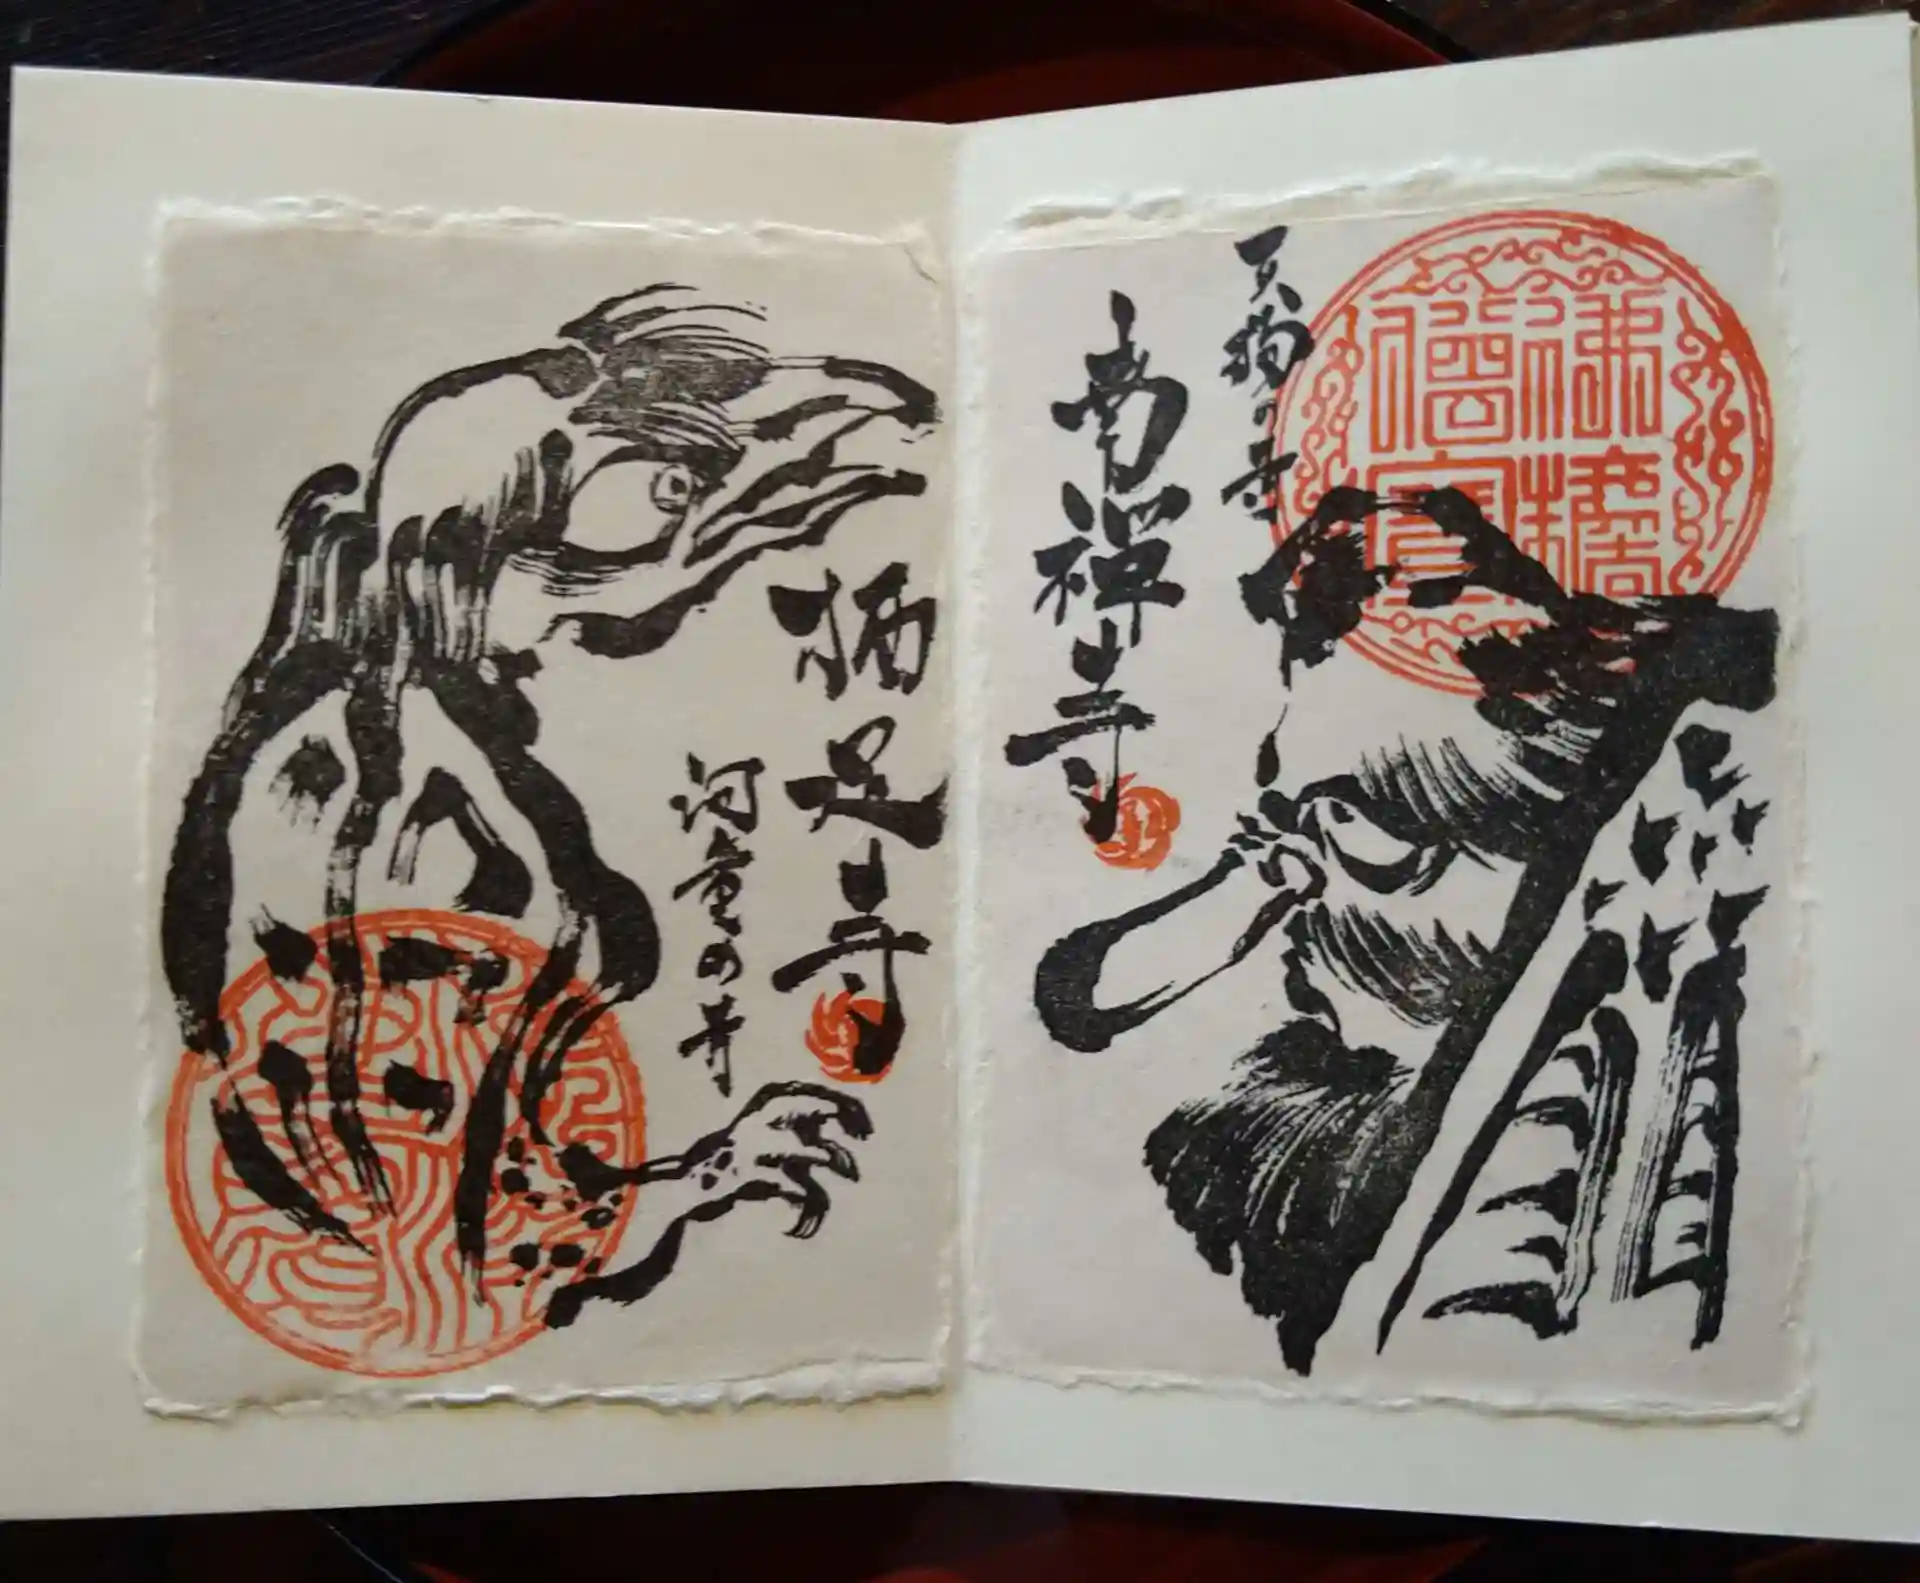 天狗の寺
南禅寺
栖足寺
河童の寺